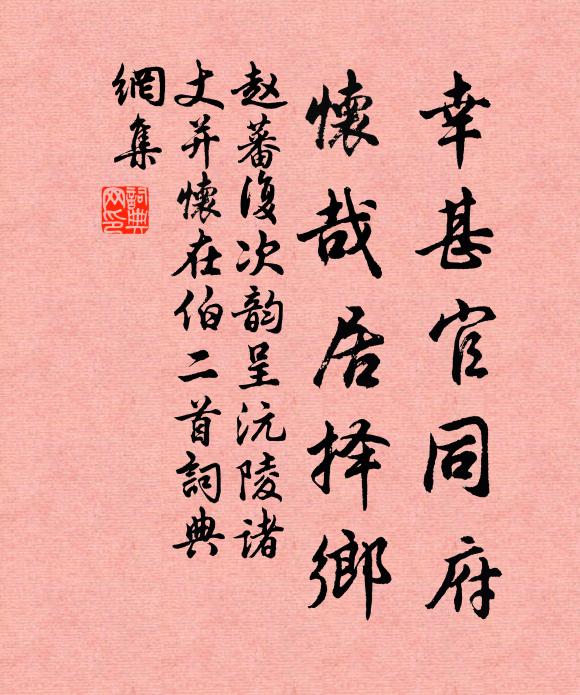 幸甚官同府
懷哉居择鄉
赵蕃復次韵呈沅陵诸
丈并懷在伯二首詞典
網集
詞典
网印